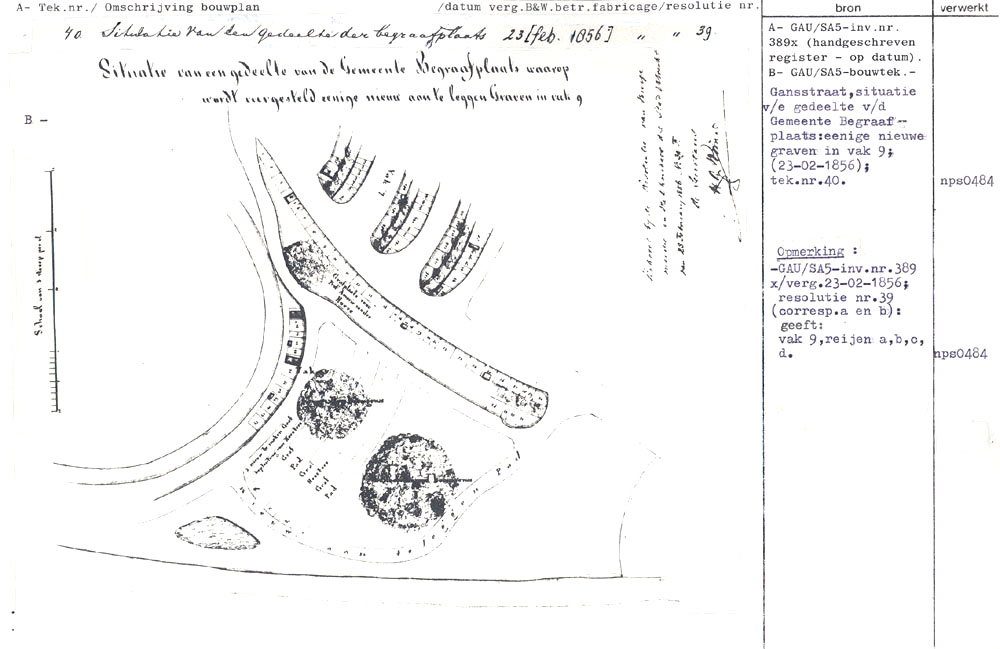 A- Tek.nr./ Omschrijving bouwplan /datum verg.B&W.betr.fabricage/resolutie nr.
bron
verwerkt
40. Situatie van een gedeelte der begraafplaats 23 [feb. 1856] " " 39
Situatie van een gedeelte van de Gemeente Begraafplaats waarop
wordt voorgesteld eenige nieuw aan te leggen Graven in vak 9
B -
A- GAU/SA5-inv.nr.
389x (handgeschreven
register - op datum).
B- GAU/SA5-bouwtek.-
Gansstraat,situatie
v/e gedeelte v/d
Gemeente Begraaf-
plaats:eenige nieuwe
graven in vak 9;
(23-02-1856);
tek.nr.40.
nps0484
Opmerking :
-GAU/SA5-inv.nr.389
x/verg.23-02-1856;
resolutie nr.39
(corresp.a en b):
geeft:
vak 9,reijen a,b,c,
d.
nps0484
Graf
Pad
Graf
Graf
Pad
Pad